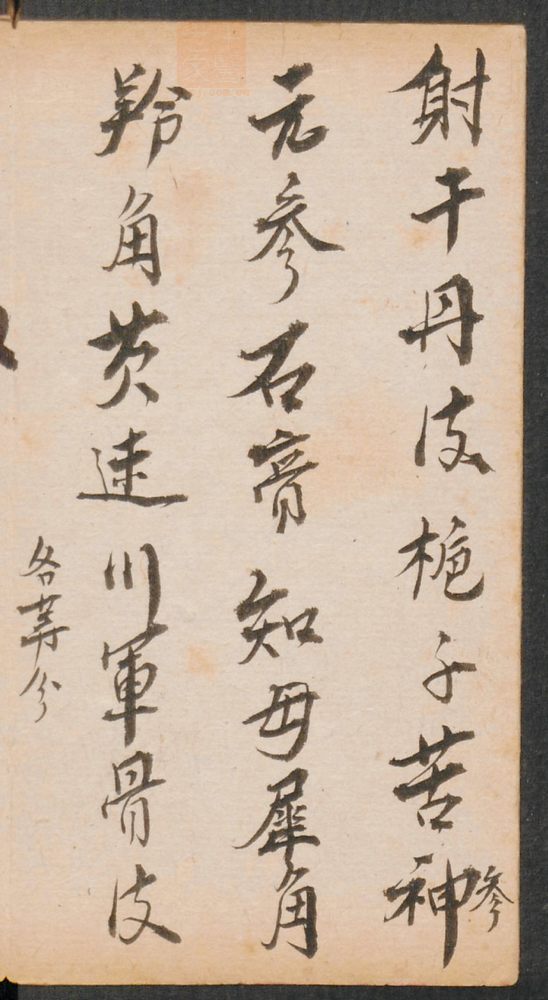 射干丹皮梔子苦神參
元參石膏知母犀角
羚角黄連川軍骨皮
各等分